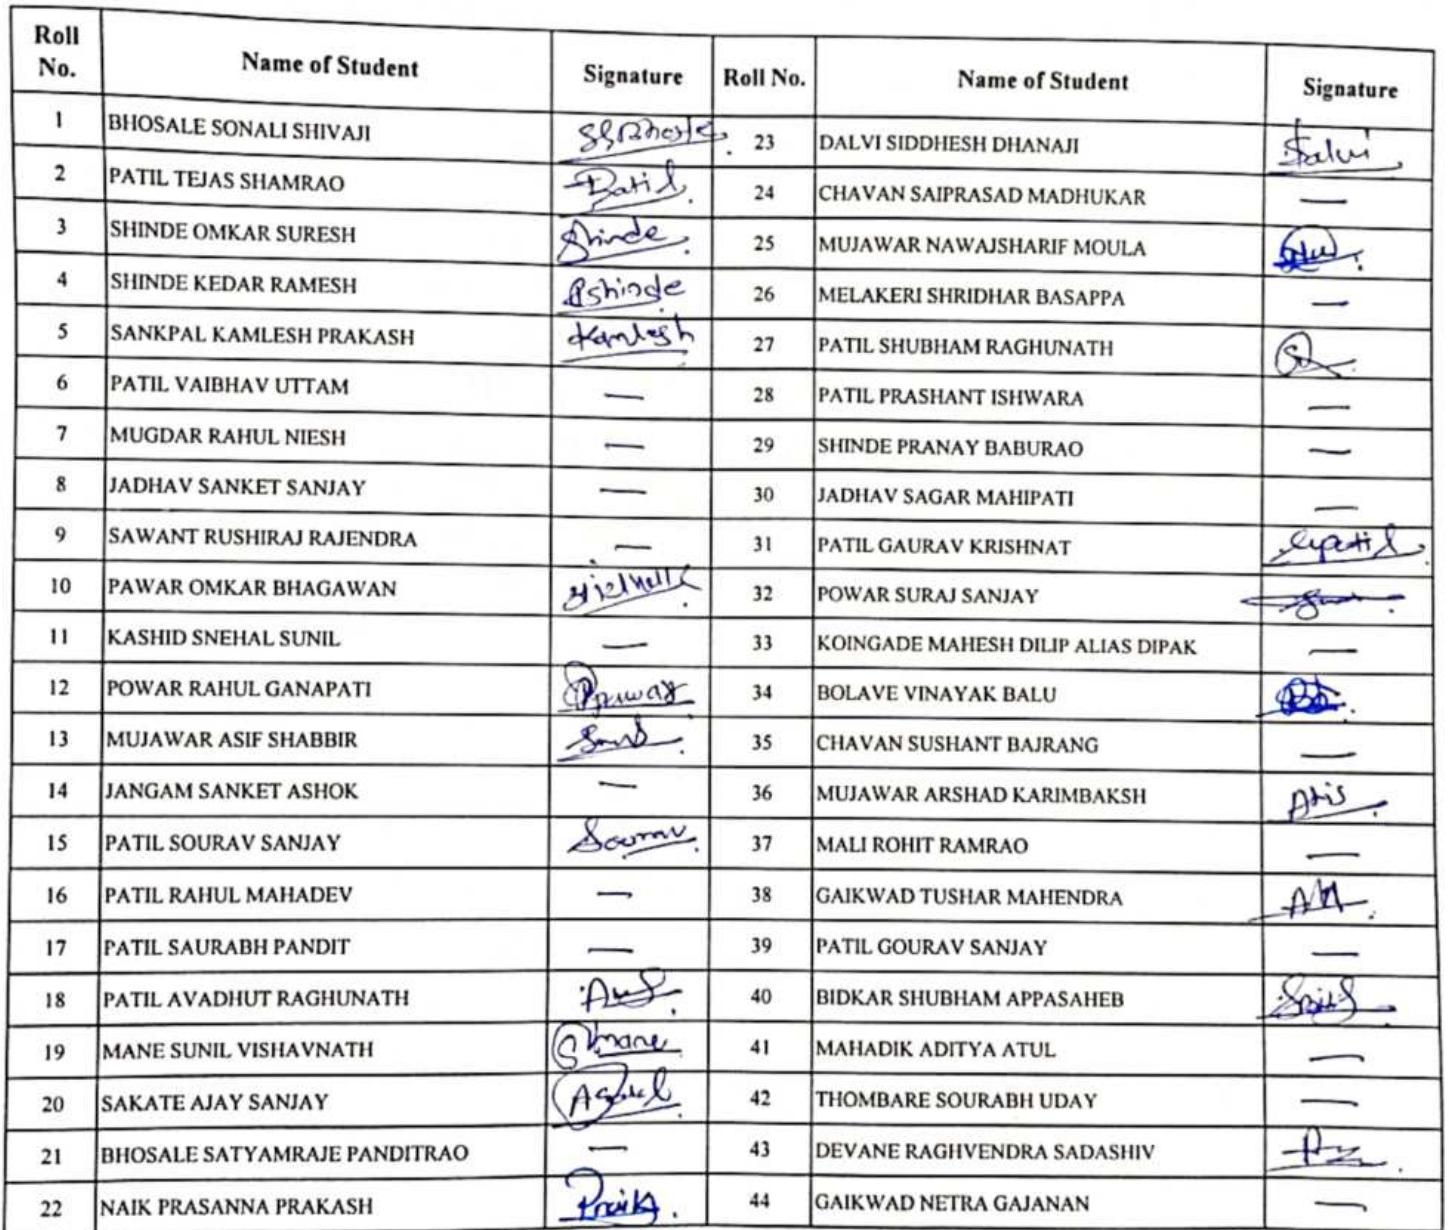 Roll No. Name of Student Signature Roll No. Name of Student Signature
1 BHOSALE SONALI SHIVAJI 23 DALVI SIDDHESH DHANAJI Dalvi
2 PATIL TEJAS SHAMRAO Patil 24 CHAVAN SAIPRASAD MADHUKAR —
3 SHINDE OMKAR SURESH Shinde 25 MUJAWAR NAWAJSHARIF MOULA
4 SHINDE KEDAR RAMESH Rshinde 26 MELAKERI SHRIDHAR BASAPPA —
5 SANKPAL KAMLESH PRAKASH Kamlesh 27 PATIL SHUBHAM RAGHUNATH
6 PATIL VAIBHAV UTTAM — 28 PATIL PRASHANT ISHWARA —
7 MUGDAR RAHUL NIESH — 29 SHINDE PRANAY BABURAO —
8 JADHAV SANKET SANJAY — 30 JADHAV SAGAR MAHIPATI —
9 SAWANT RUSHIRAJ RAJENDRA — 31 PATIL GAURAV KRISHNAT
10 PAWAR OMKAR BHAGAWAN 32 POWAR SURAJ SANJAY
11 KASHID SNEHAL SUNIL — 33 KOINGADE MAHESH DILIP ALIAS DIPAK —
12 POWAR RAHUL GANAPATI 34 BOLAVE VINAYAK BALU
13 MUJAWAR ASIF SHABBIR 35 CHAVAN SUSHANT BAJRANG —
14 JANGAM SANKET ASHOK — 36 MUJAWAR ARSHAD KARIMBAKSH
15 PATIL SOURAV SANJAY Sourav 37 MALI ROHIT RAMRAO —
16 PATIL RAHUL MAHADEV — 38 GAIKWAD TUSHAR MAHENDRA
17 PATIL SAURABH PANDIT — 39 PATIL GOURAV SANJAY —
18 PATIL AVADHUT RAGHUNATH 40 BIDKAR SHUBHAM APPASAHEB
19 MANE SUNIL VISHAVNATH Smane 41 MAHADIK ADITYA ATUL —
20 SAKATE AJAY SANJAY 42 THOMBARE SOURABH UDAY —
21 BHOSALE SATYAMRAJE PANDITRAO — 43 DEVANE RAGHVENDRA SADASHIV
22 NAIK PRASANNA PRAKASH 44 GAIKWAD NETRA GAJANAN —